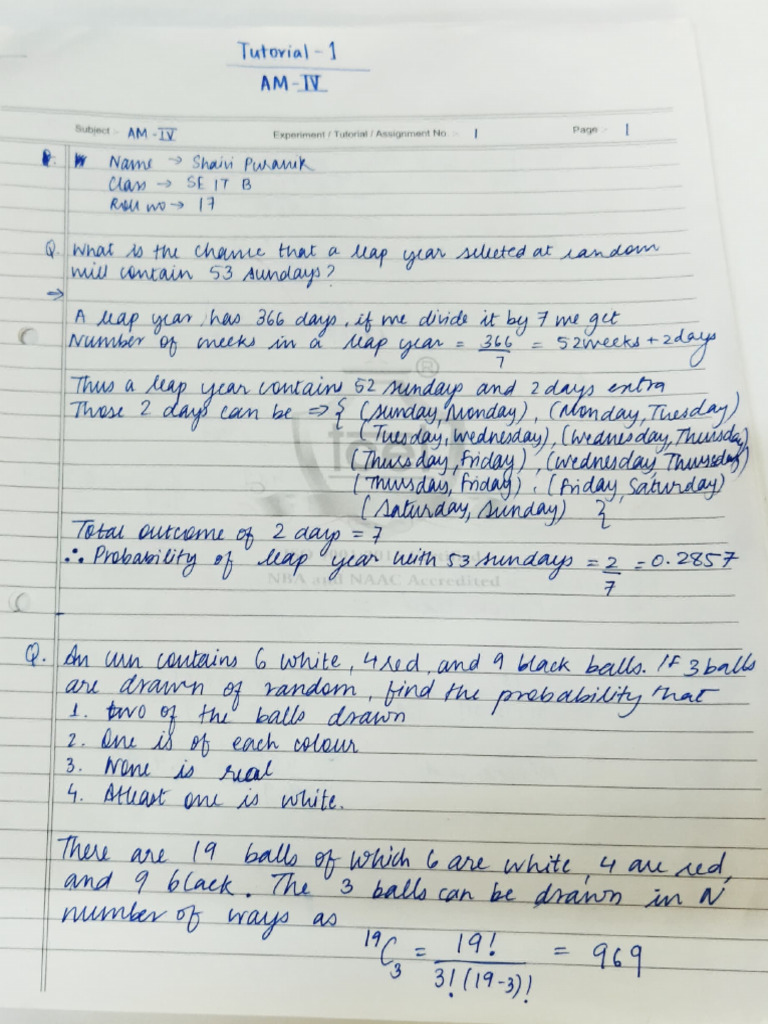 Tutorial - 1
AM - IV
Subject :- AM - IV Experiment / Tutorial / Assignment No. :- 1 Page :- 1
Name → Shaivi Puranik
Class → SE IT B
Roll no → 17
Q. What is the chance that a leap year selected at random
will contain 53 sundays?
→
A leap year has 366 days, if we divide it by 7 we get
Number of weeks in a leap year = 366/7 = 52 weeks + 2 days
Thus a leap year contain 52 sundays and 2 days extra
Those 2 days can be => { (Sunday, Monday), (Monday, Tuesday)
(Tuesday, Wednesday), (Wednesday, Thursday)
(Thursday, Friday), (Wednesday, Thursday)
(Thursday, Friday), (Friday, Saturday)
(Saturday, Sunday) }
Total outcome of 2 days = 7
∴ Probability of leap year with 53 sundays = 2/7 = 0.2857
NBA and NAAC Accredited
Q. An urn contains 6 white, 4 red, and 9 black balls. If 3 balls
are drawn of random, find the probability that
1. two of the balls drawn
2. One is of each colour
3. None is real
4. Atleast one is white.
There are 19 balls of which 6 are white, 4 are red,
and 9 black. The 3 balls can be drawn in N
number of ways as
¹⁹C₃ = 19! / 3! (19-3)! = 969